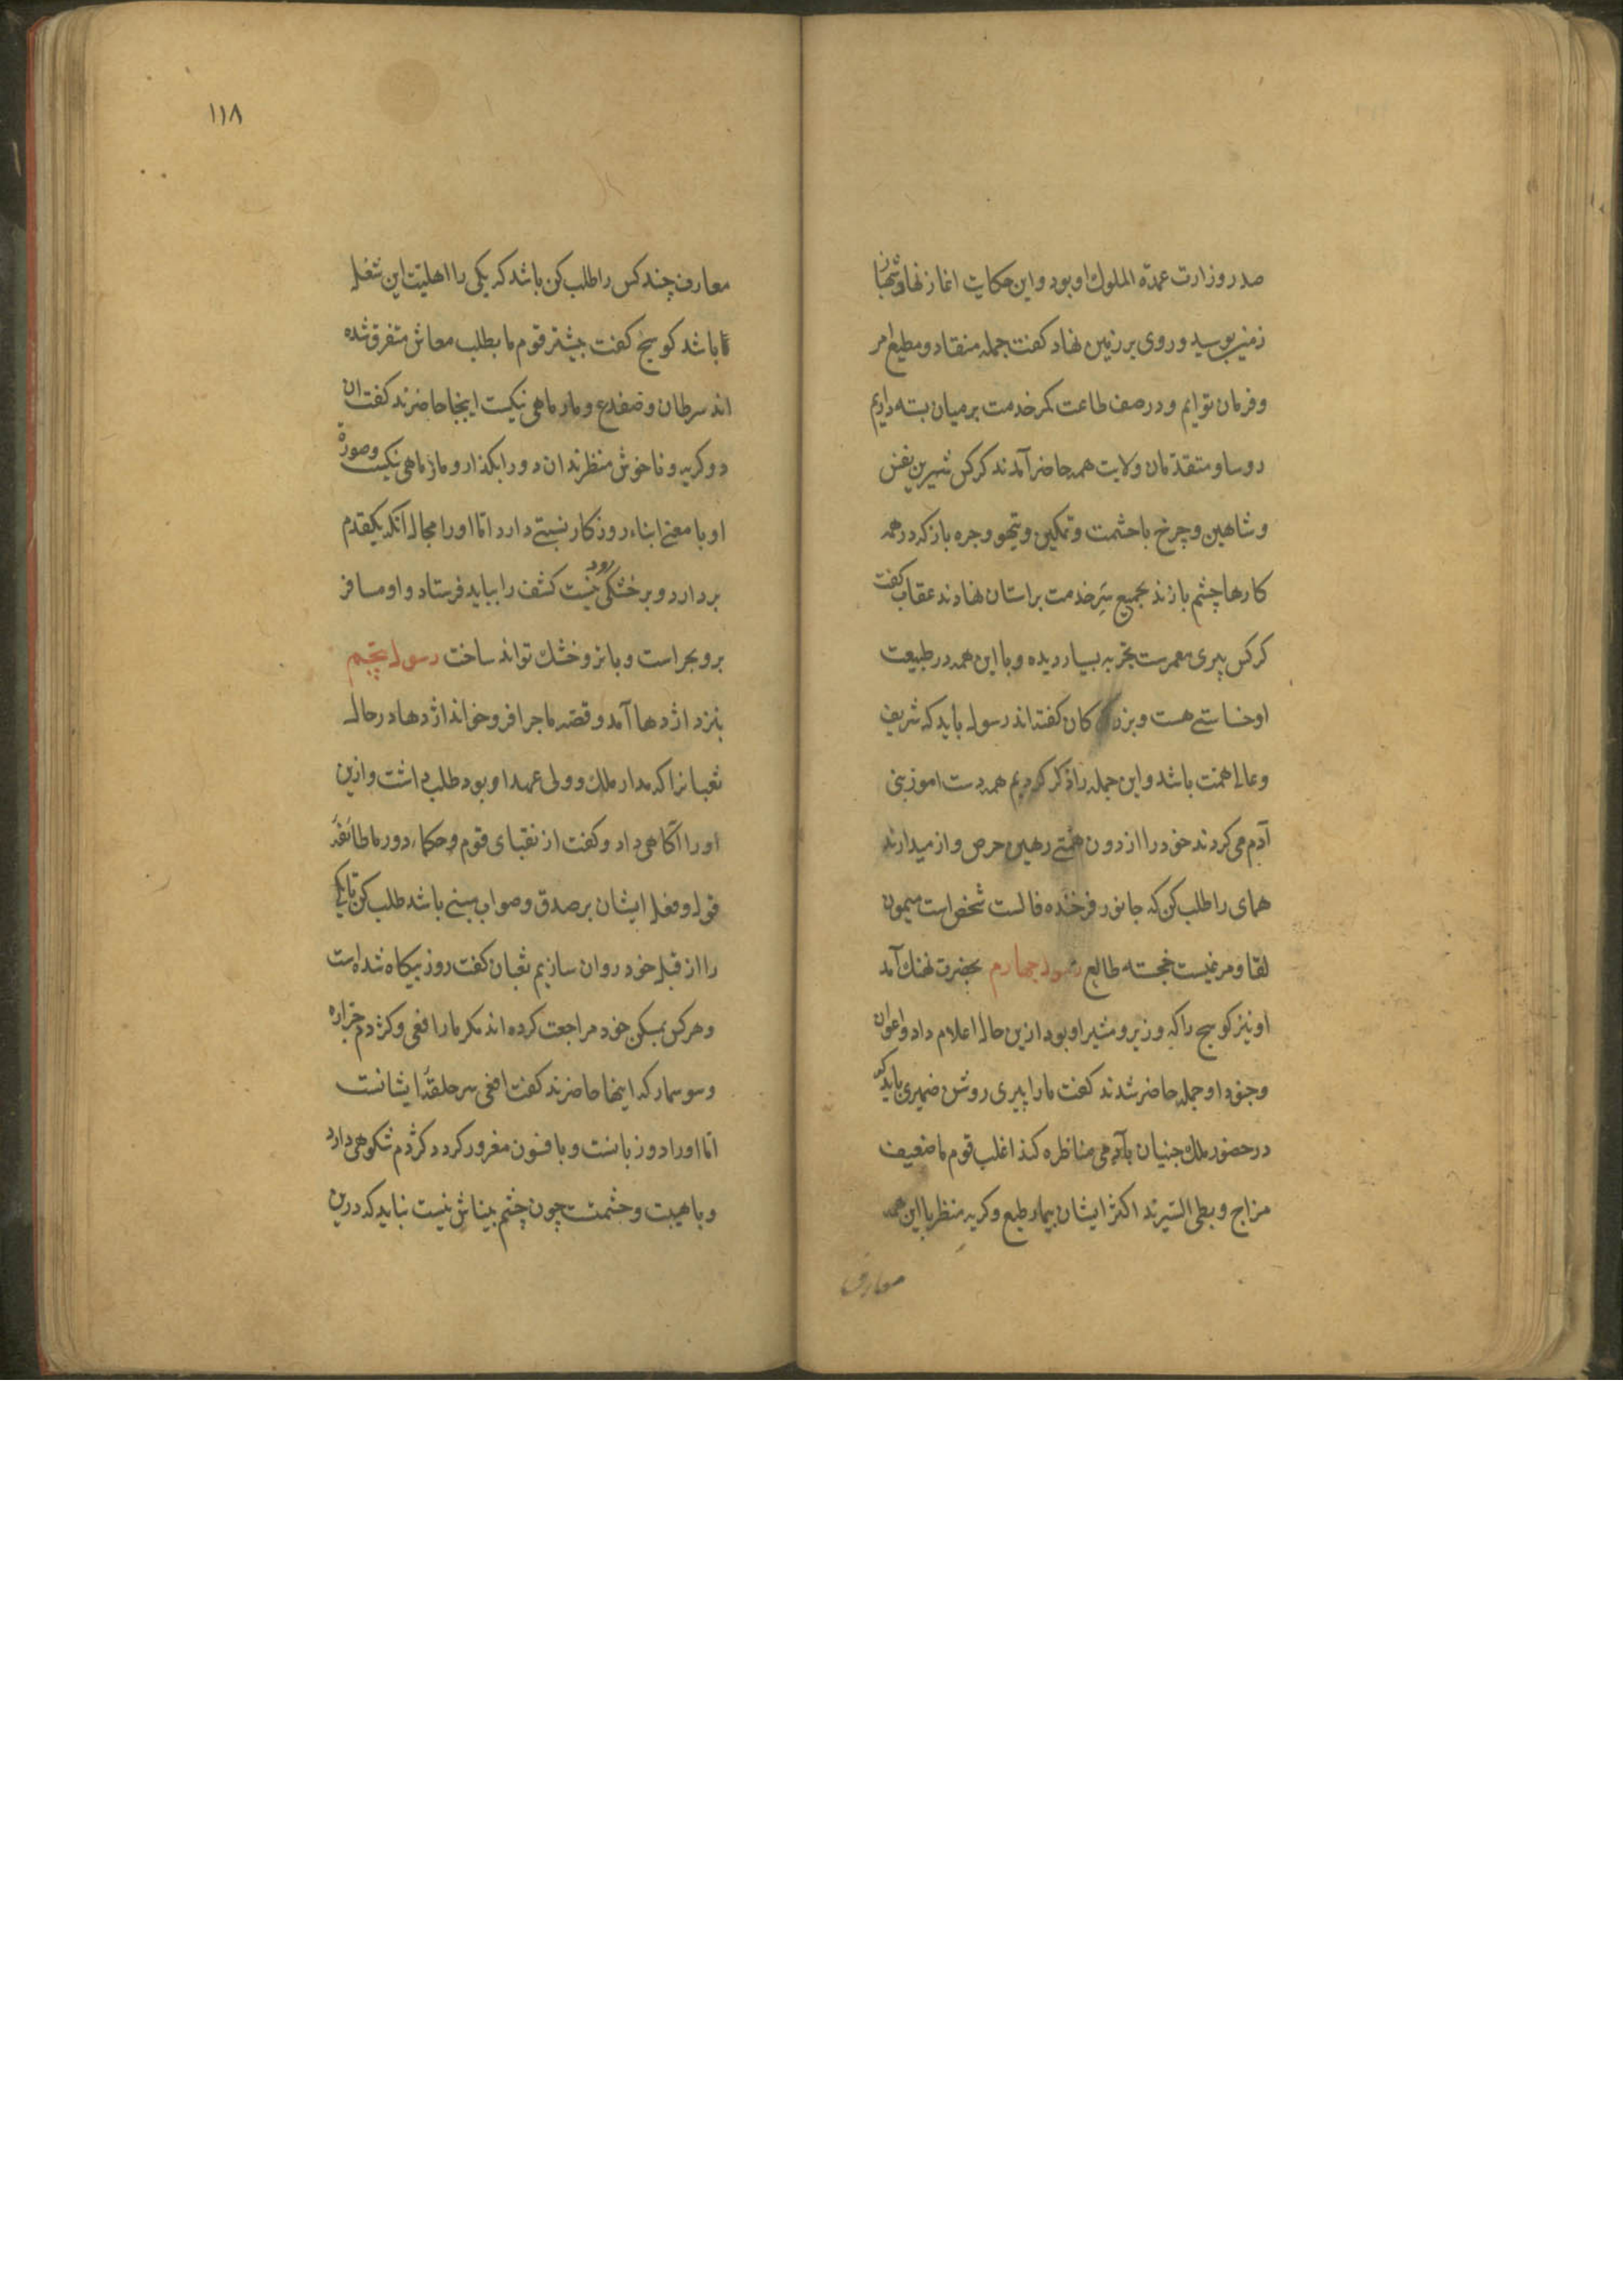 صدر وزارت عمدة الملوك او بود و این حکایت اغاز نهاد شهباز
زمین ببوسید و روی بر زمین نهاد کفت جمله منقاد و مطیع امر
و فرمان توایم و در صف طاعت کمر خدمت بر میان بسته داریم
روسا و متقدمان ولایت همه حاضر آمدند کرکس شیرین نفس
و شاهین و چرخ با حشمت و تمکین و تیهو و جره باز که در همه
کارها چشم بازند بجمیع سر خدمت بر استان نهادند عقاب کفت
کرکس پیری معمرست تجربه بسیار دیده و با این همه در طبیعت
او خساستی هست و بزرکان کفته‌اند رسول باید که شریف
و عالی همت باشد و این جمله را ذکر کردیم همه دست اموز بنی
آدم می کردند خود را از دون همتی رهین حرص و از میدارند
همای را طلب کن که جانور فرخنده فالست شخص است میمون
لقا و مرغیست خجسته طالع رسول چهارم بحضرت نهنك آمد
او نیز کوسج را که وزیر و مشیر او بود ازین حال اعلام داد و اعوان
و جنود او جمله حاضر شدند کفت ما را پیری روشن ضمیری باید که
در حضور ملك جنیان با آدمی مناظره کند اغلب قوم ما ضعیف
مزاج و بطی السیرند اکثر ایشان بیمار طبع و کریه منظر با این همه
معارف
۱۱۸
معارف چند کس را طلب کن باشد که یکی را اهلیت این شغل
تا باشد کوسج کفت بیشتر قوم ما بطلب معاش متفرق شده
اند سرطان و ضفدع و مار ماهی نیکست اینجا حاضرند کفت ان
دو کریه و ناخوش منظرند ان دو را بکذار و مار ماهی نیکست و صورة
او با معنی ابناء روزکار نسبتی دارد اما او را مجال آنکه یکقدم
بردارد و بر خشکی رود نیست کشف را بباید فرستاد و او مسافر
بر و بحر است و با تر و خشك تواند ساخت رسول پنجم
بنزد اژدها آمد و قصه ماجرا فرو خواند اژدها در حال
ثعبانرا که مدار ملك و ولی عهد او بود طلب داشت و ازین
او را آکاهی داد و کفت از نقبای قوم و حکماء دور ما طائفهٔ
قول و فعل ایشان بر صدق و صواب مبنی باشد طلب کن تا یکی
را از قبل خود روان سازیم ثعبان کفت روز بیکاه شده است
و هر کس بمسکن خود مراجعت کرده اند مکر مار افعی و کژدم جراره
و سوسمار که اینها حاضرند کفت افعی سر حلقهٔ ایشانست
اما او را دو زبانست و بافسون مغرور کردد کژدم شکوهی دارد
و با هیبت و حشمتست چون چشم بیناش نیست نباید که درین